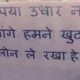 पया उधार न
गे हमने खु
लोन ले रखा है